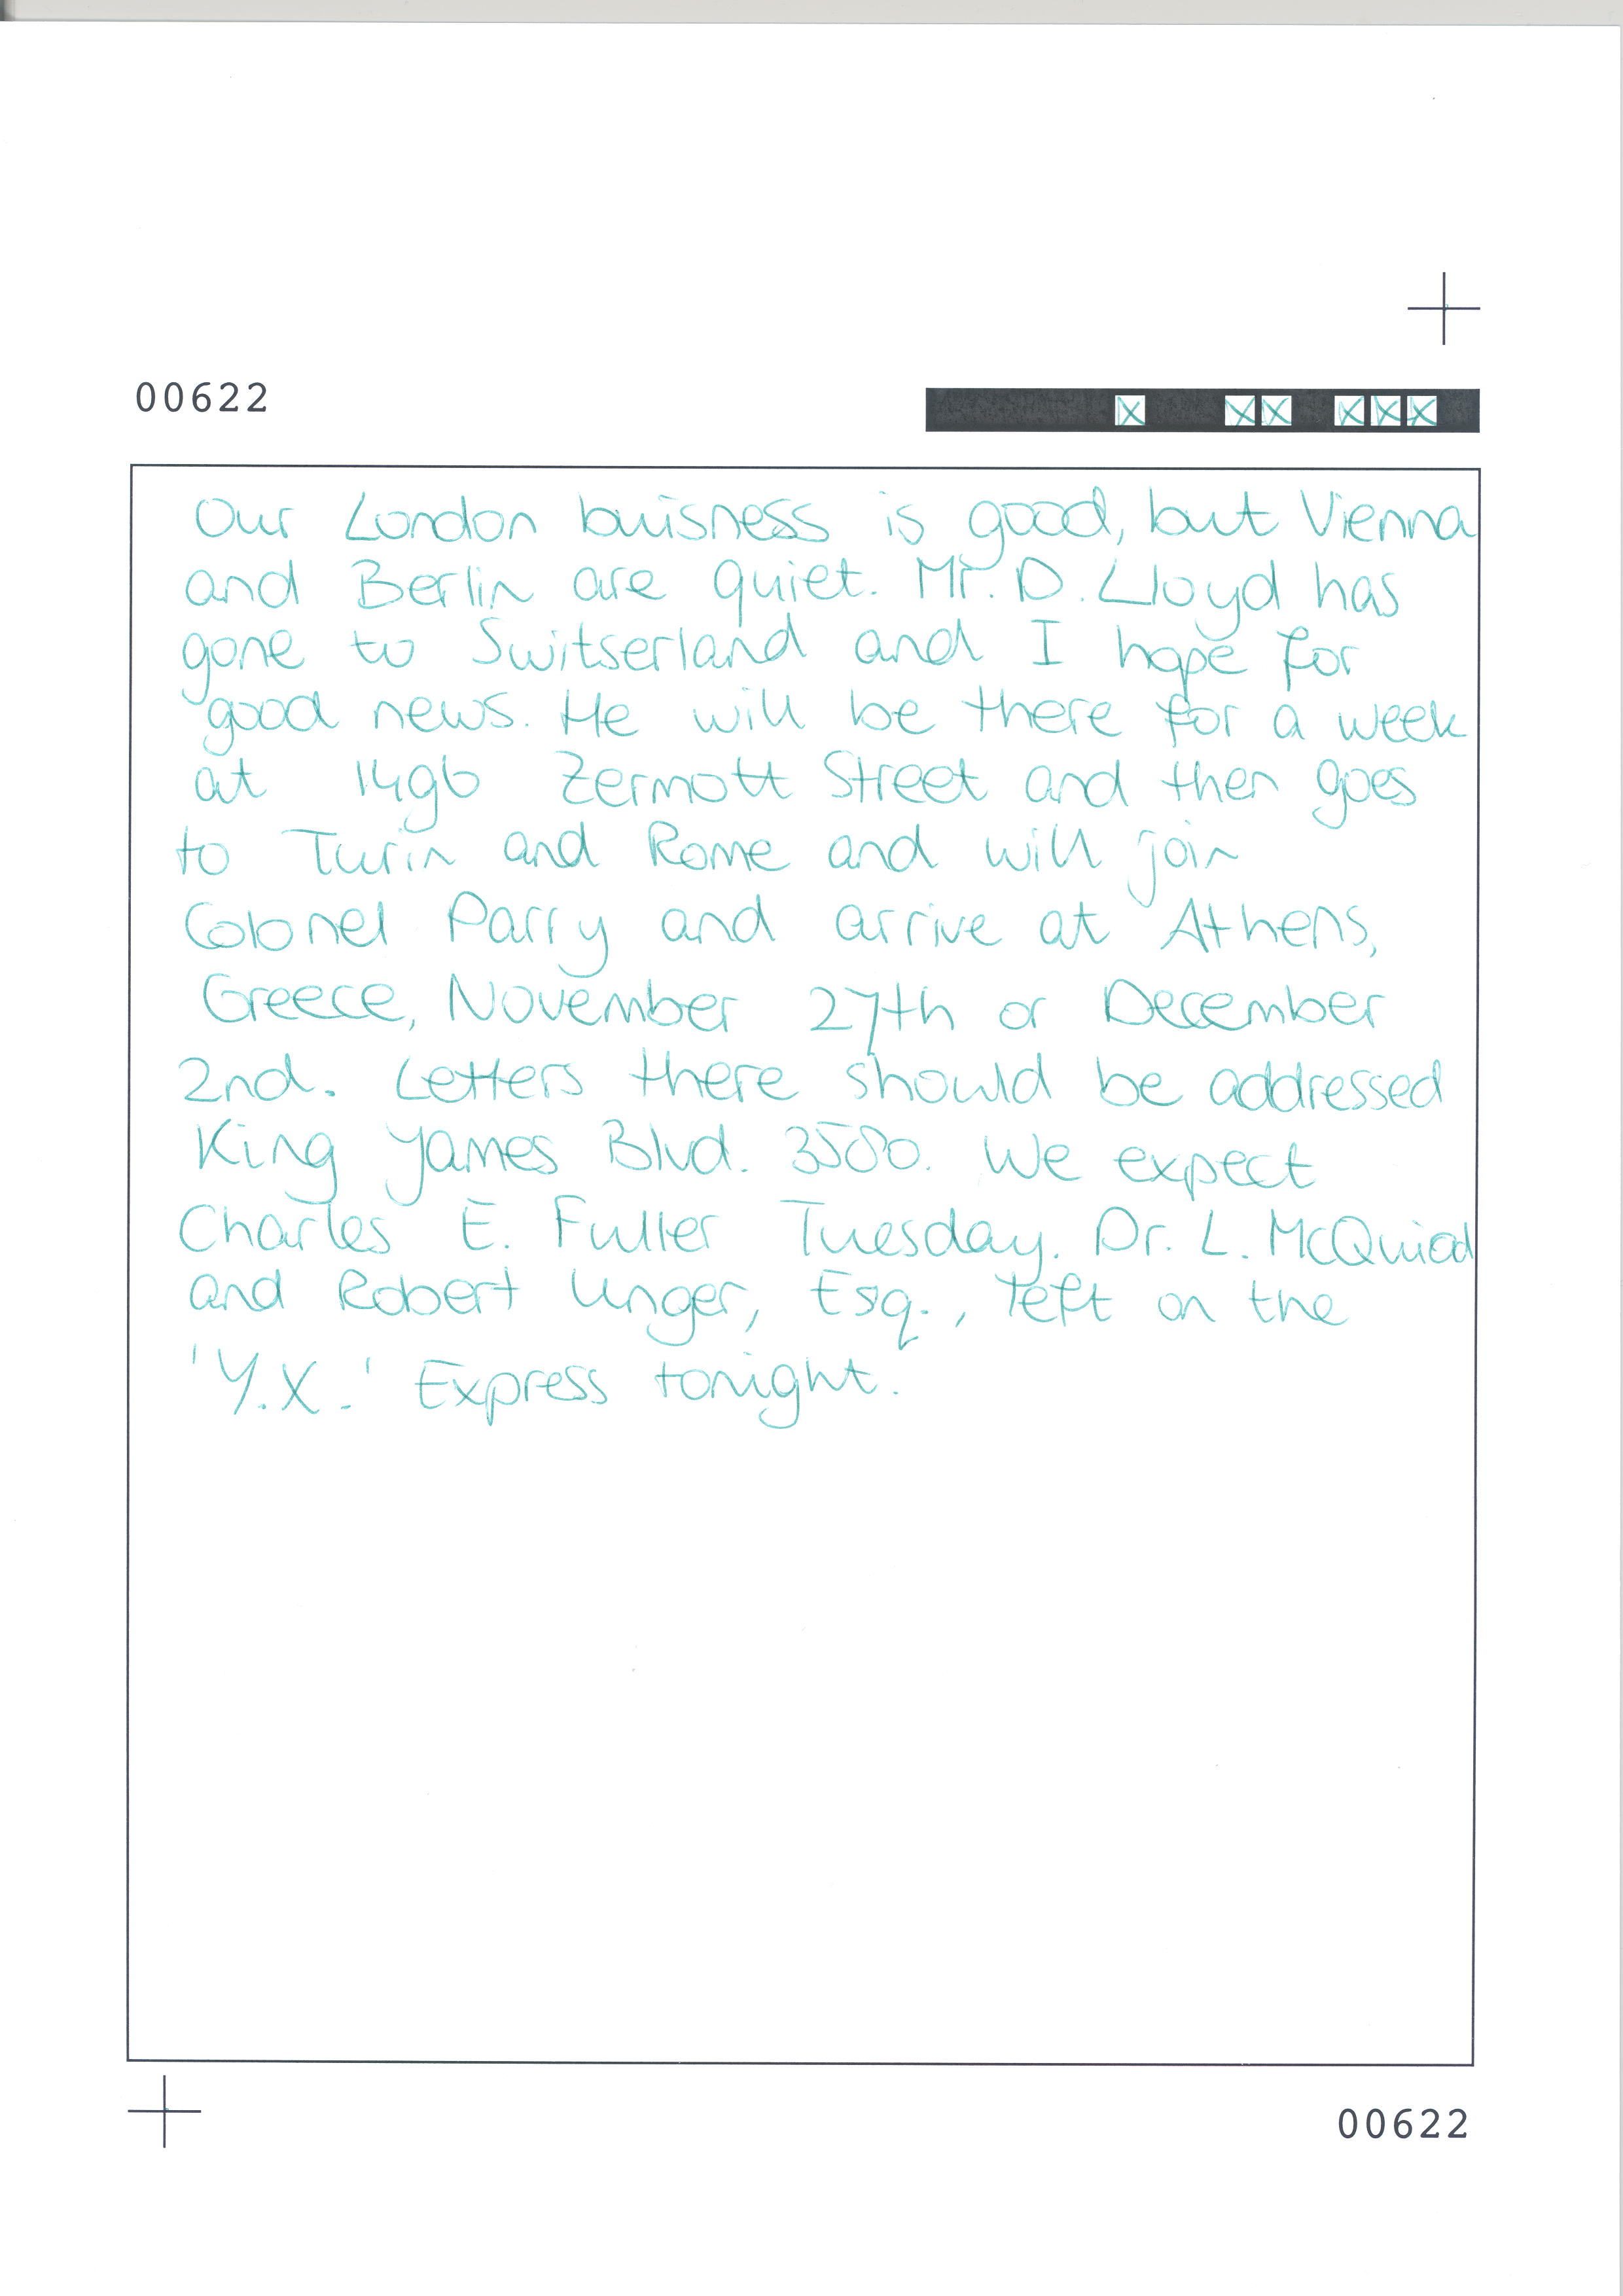 00622
Our London buisness is good, but Vienna
and Berlin are quiet. Mr. D. Lloyd has
gone to Switserland and I hope for
good news. He will be there for a week
at 1496 Zermott Street and then goes
to Turin and Rome and will join
Colonel Parry and arrive at Athens,
Greece, November 27th or December
2nd. Letters there should be addressed
King James Blvd. 3580. We expect
Charles E. Fuller Tuesday. Dr. L. McQuiad
and Robert Unger, Esq., left on the
'Y.X.' Express tonight.
00622